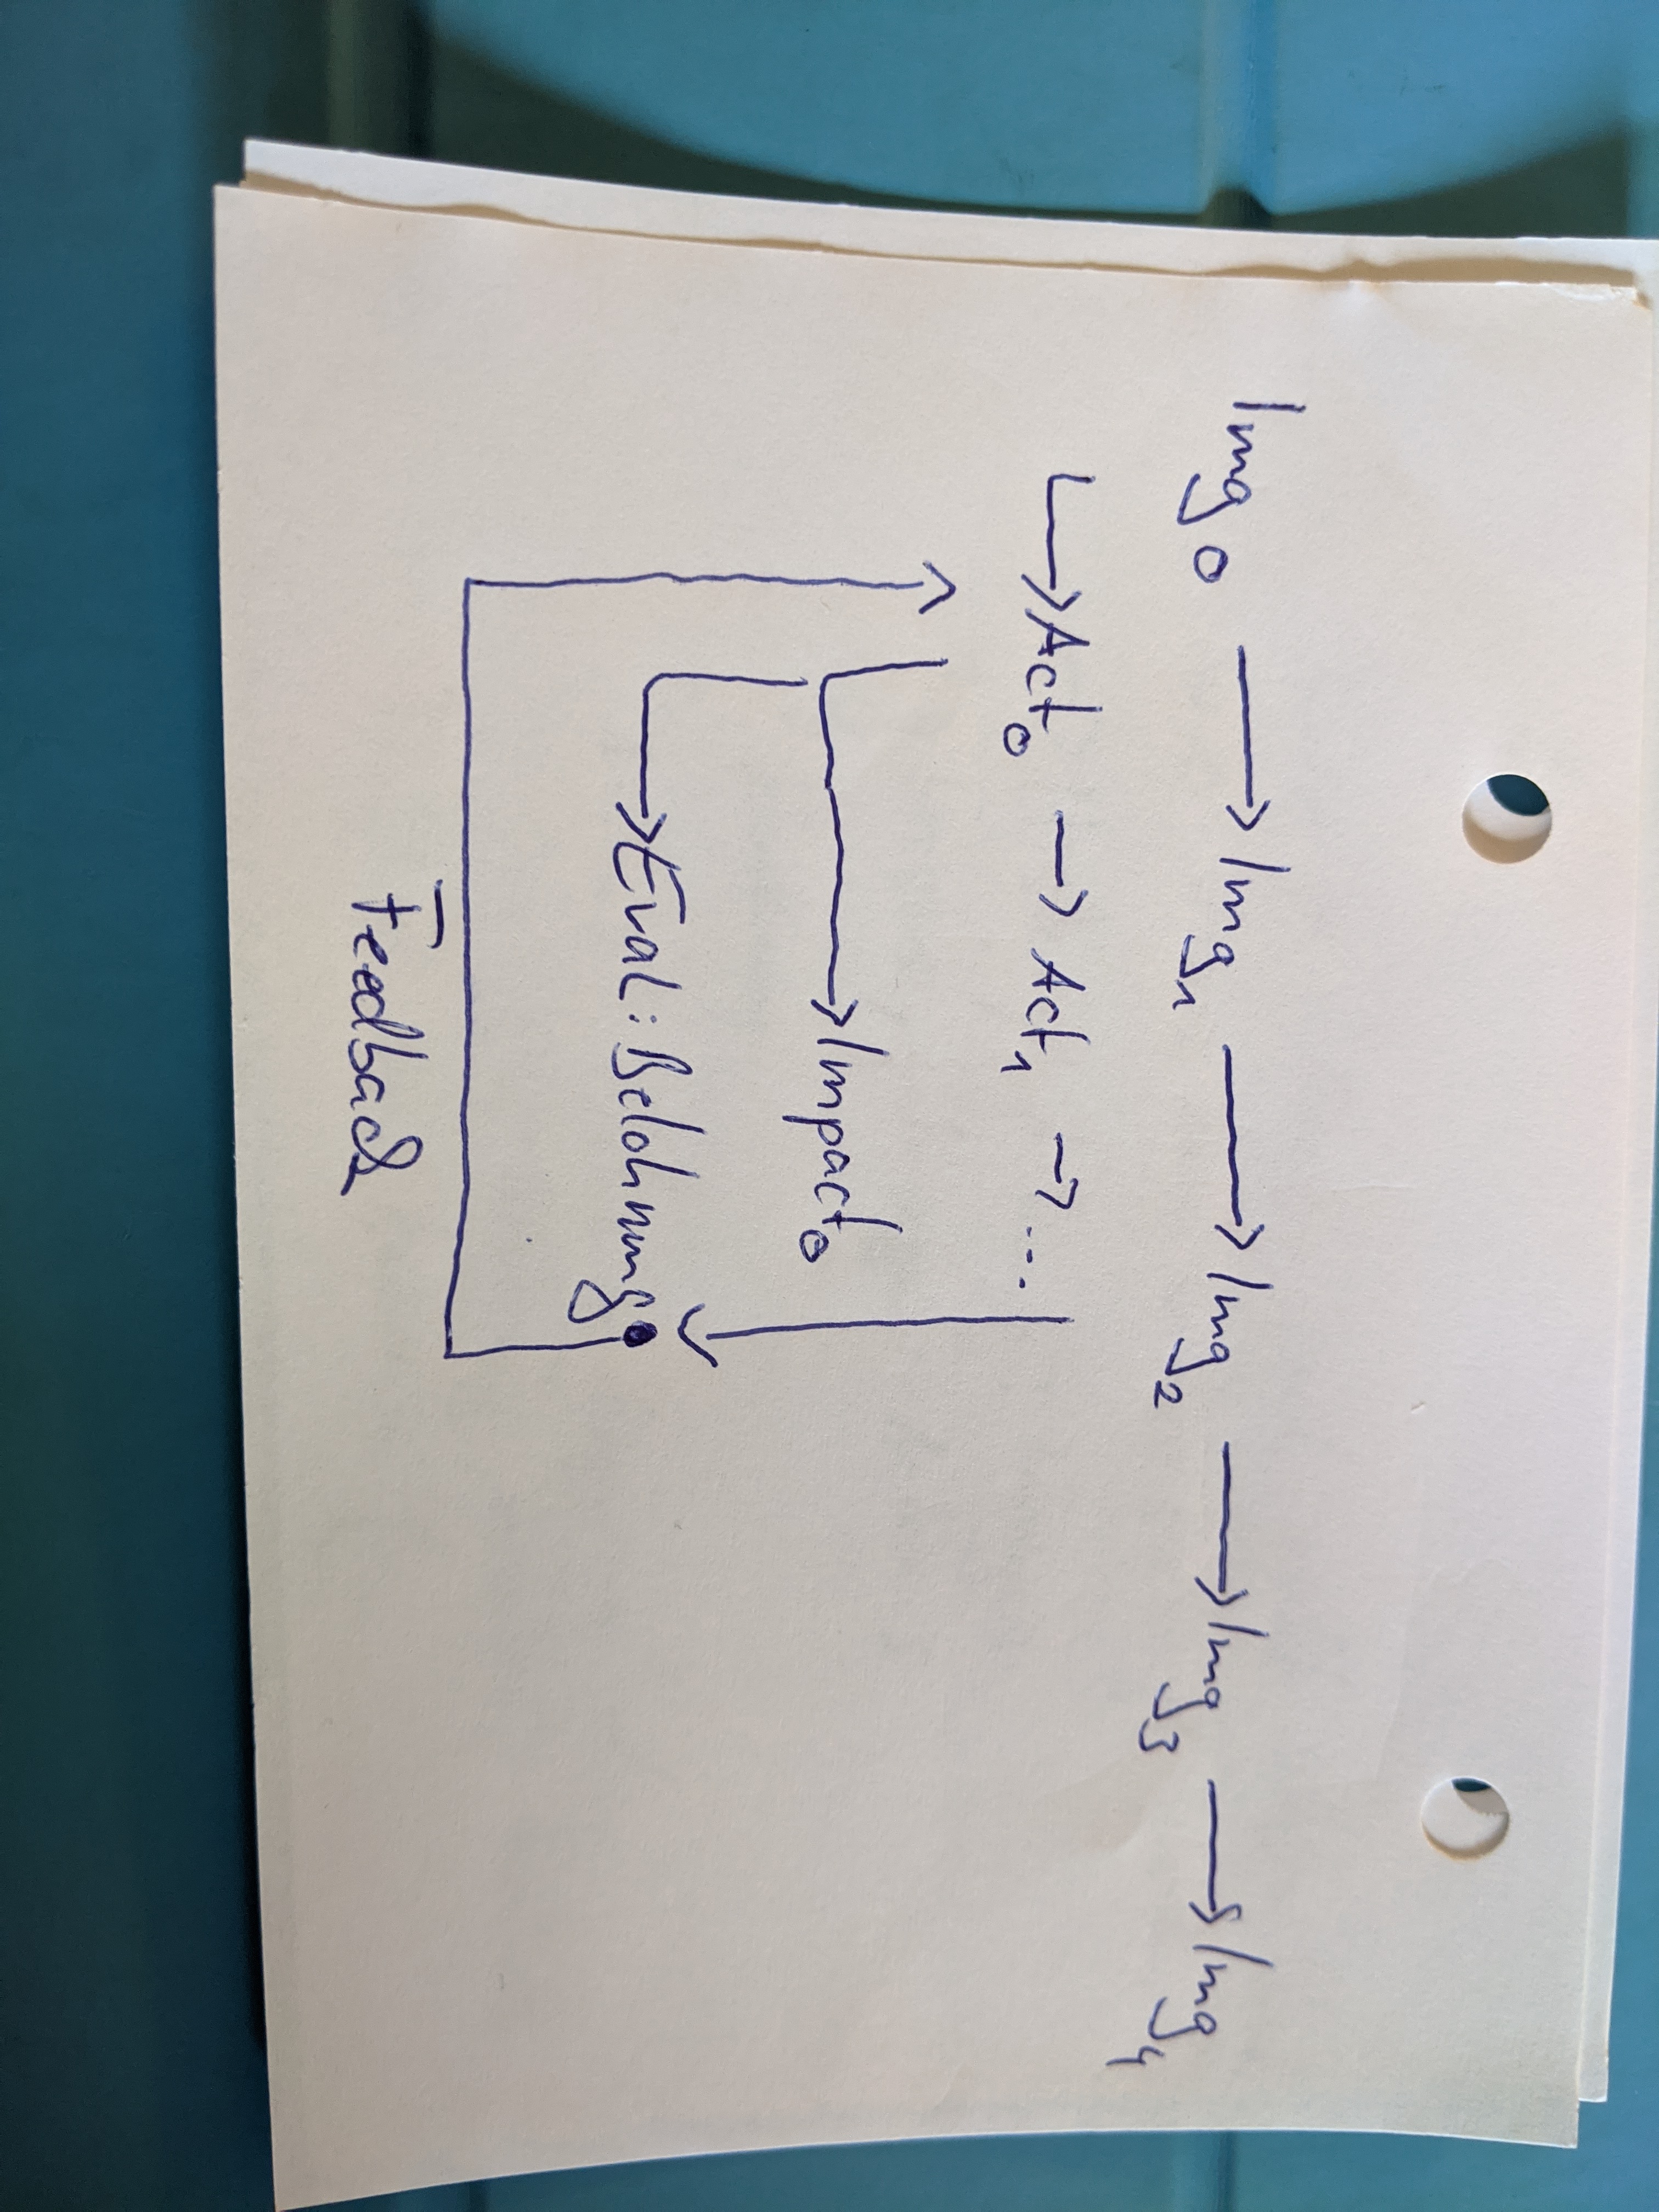 Img0 → Img1 → Img2 → Img3 → Img4
→ Act0 → Act1 → ...
→ Impact0
→ Eval: Belohnung
Feedback